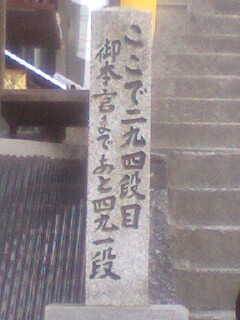 ここで二九四段目
御本宮まであと四九一段